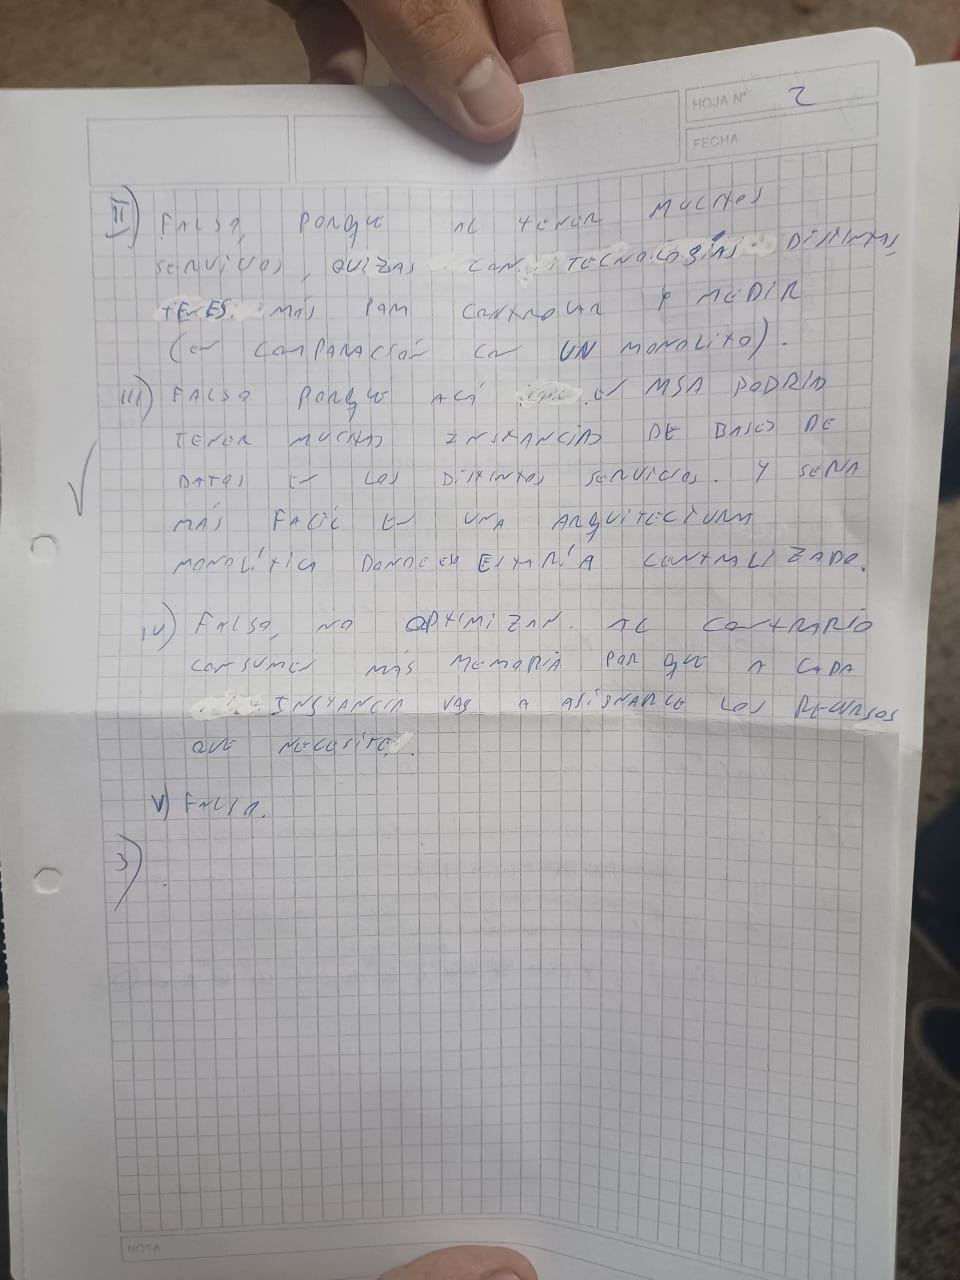 HOJA N° 2
FECHA
II) FALSA, PORQUE AL TENER MUCHOS
SERVICIOS, QUIZAS CON TECNOLOGÍAS DISTINTAS,
TENES MÁS PARA CONTROLAR Y MEDIR
(EN COMPARACIÓN CON UN MONOLITO).
III) FALSO PORQUE ACÁ EN MSA PODRIA
TENER MUCHAS INSTANCIAS DE BASES DE
DATOS EN LOS DISTINTOS SERVICIOS. Y SERIA
MÁS FACIL EN UNA ARQUITECTURA
MONOLÍTICA DONDE ESTARÍA CENTRALIZADO.
IV) FALSO, NO OPTIMIZAN. AL CONTRARIO
CONSUMES MÁS MEMORIA POR QUE A CADA
INSTANCIA VAS A ASIGNARLE LOS RECURSOS
QUE NECESITE.
V) FALSA.
3)
NOTA